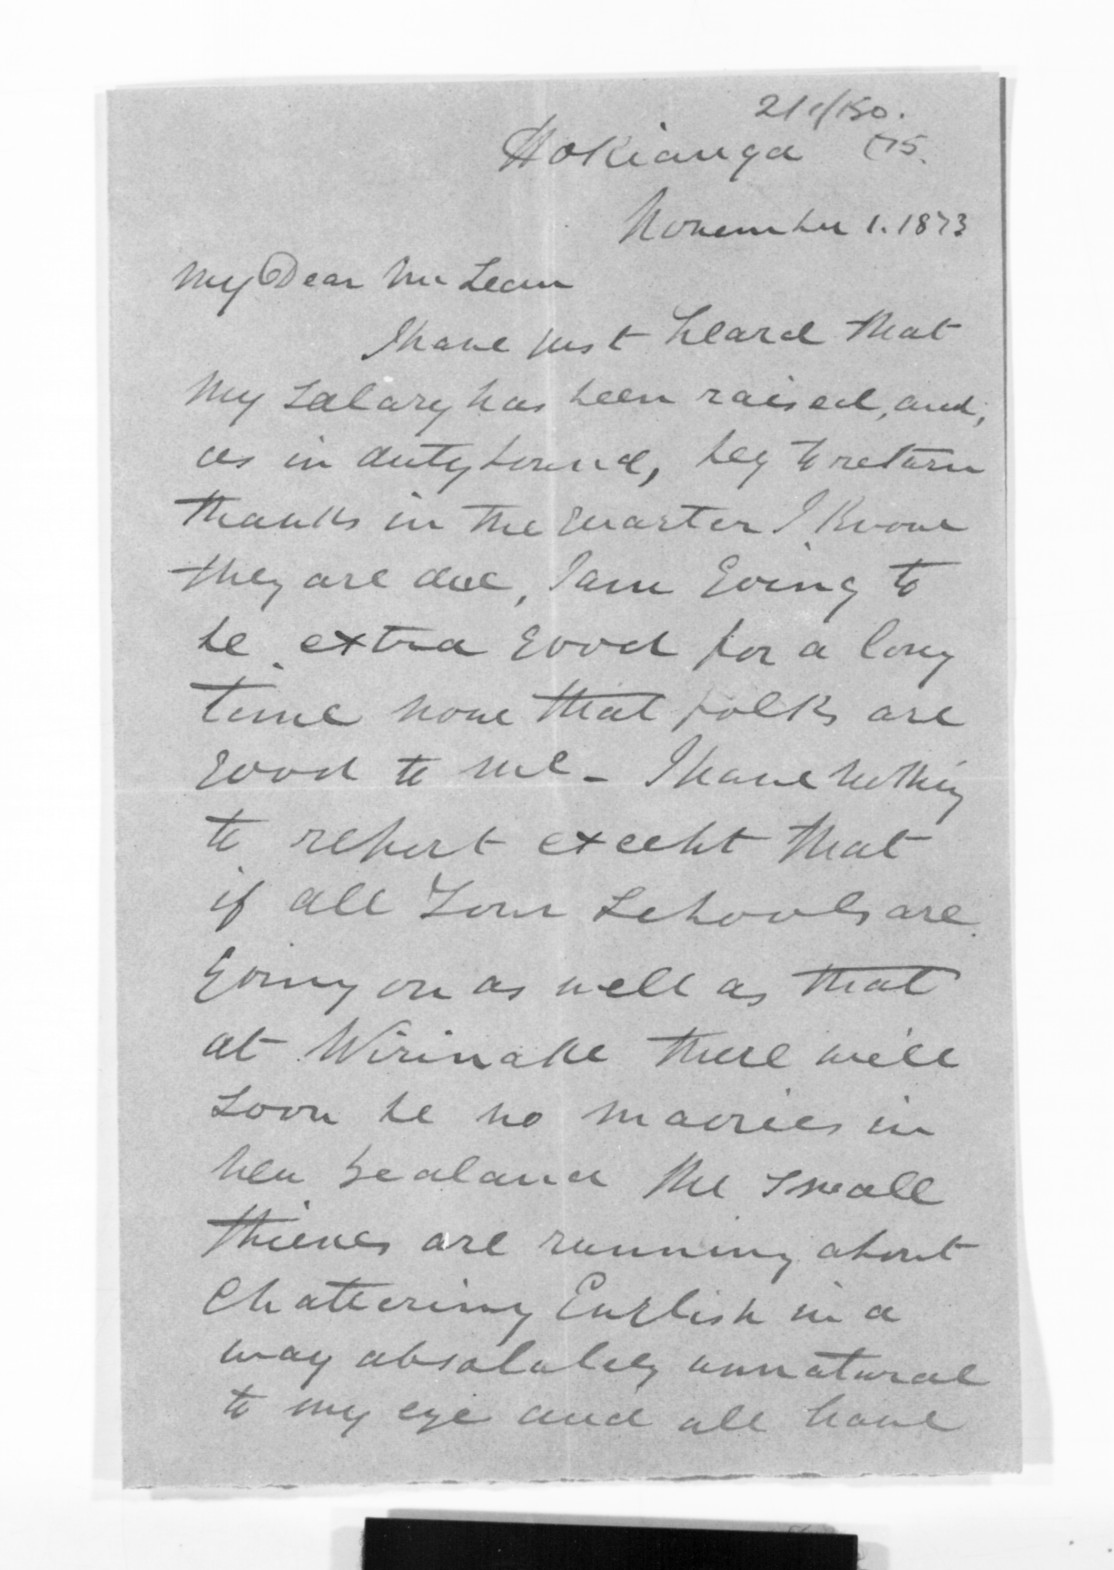 21/1/150.
Hokianga 75.
November 1. 1873
My Dear McLean
I have just heard that
My Salary has been raised, and,
as in duty bound, beg to return
thanks in the quarter I know
they are due, I am going to
be extra good for a long
time now that folks are
good to me - I have nothing
to report except that
if all Your Schools are
going on as well as that
at Wirinake there will
soon be no maories in
New Zealand the small
thieves are running about
chattering English in a
way absolutely unnatural
to my eye and all have